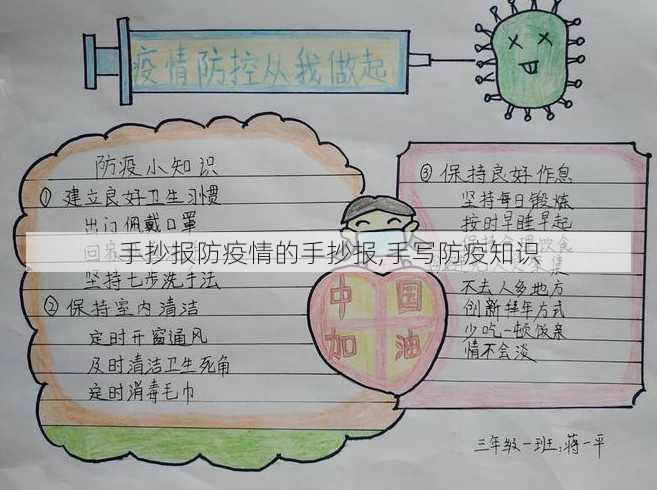 疫情防控从我做起
防疫小知识
① 建立良好卫生习惯
出门佩戴口罩
回家
坚持七步洗手法
② 保持室内清洁
定时开窗通风
及时清洁卫生死角
定时消毒毛巾
手抄报防疫情的手抄报,手写防疫知识
中国
加油
③ 保持良好作息
坚持每日锻炼
按时早睡早起
饮食
聚集
不去人多地方
创新拜年方式
少吃一顿饭亲
情不会淡
三年级一班:蒋一平